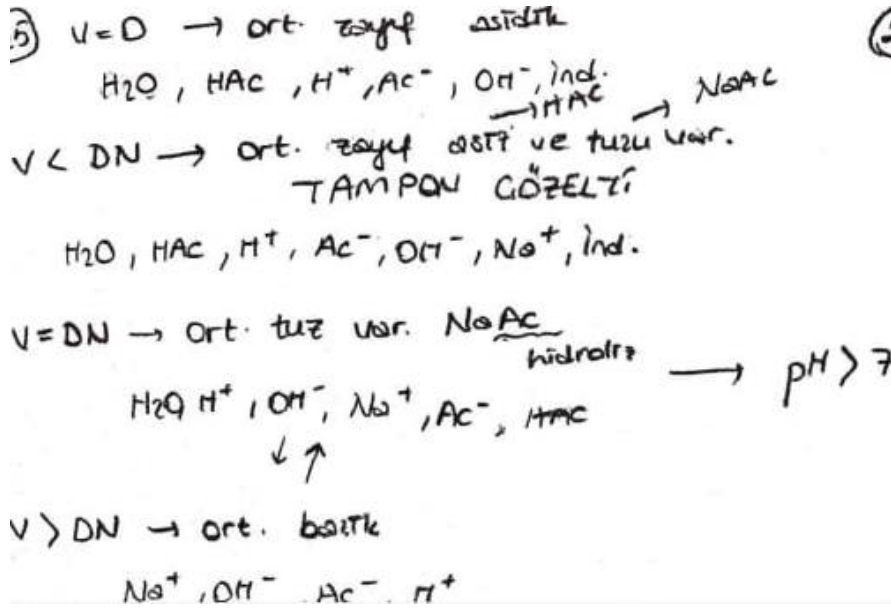 5) V=0 → ort. zayıf asidik
H2O, HAc, H⁺, Ac⁻, OH⁻, ind.
→ HAC → NaAC
V < DN → ort. zayıf asit ve tuzu var.
TAMPON ÇÖZELTİ
H2O, HAc, H⁺, Ac⁻, OH⁻, Na⁺, ind.
V = DN → ort. tuz var. NaAc
hidroliz → pH > 7
H2O H⁺, OH⁻, Na⁺, Ac⁻, HAC
↓ ↑
V > DN → ort. bazik
Na⁺, OH⁻, Ac⁻, H⁺